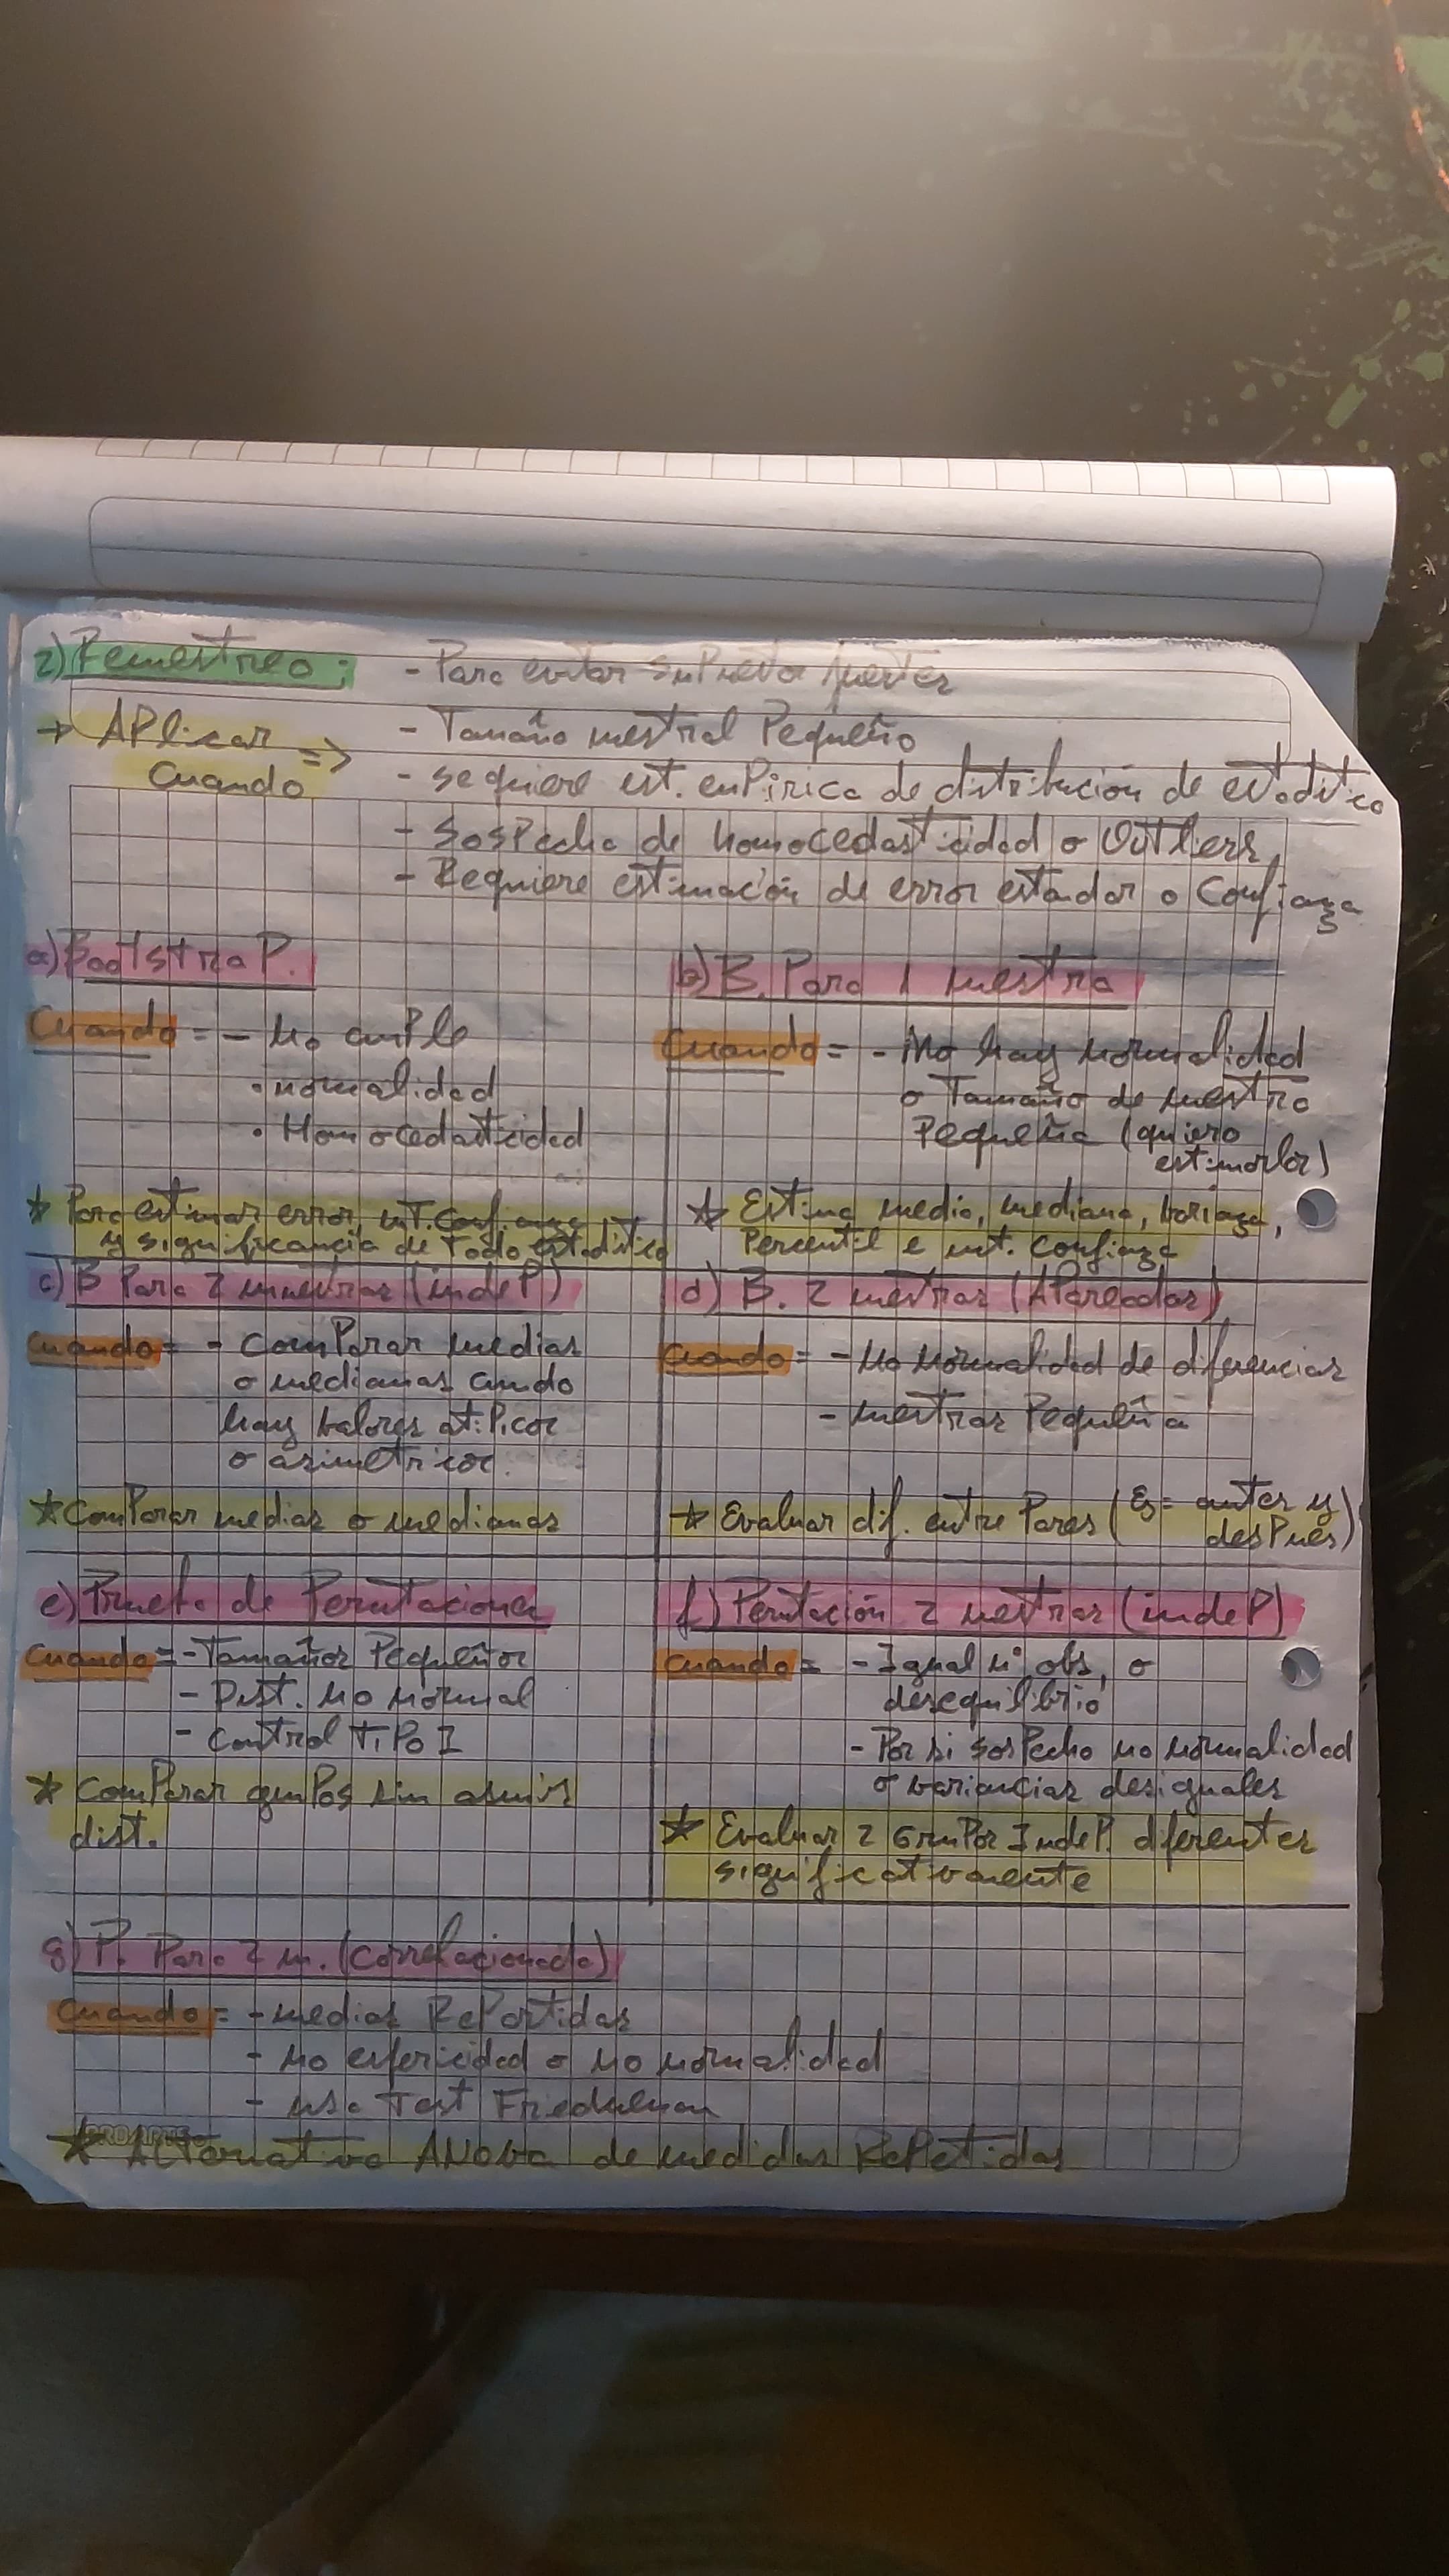 2) Remestreo:
- Para evitar supuetor fuertes
→ Aplicar cuando =>
- Tamaño mestral Pequeño
- se quiere est. enPirica de distribución de estaditico
- Sospecha de homocedasticidad o Outliers,
- Requiere estimación de error estadar o Confianza
a) Bootstrap.
Cuando = - No cumple
• normalidad
• Homocedasticidad
* Para estimar error, int. Confianza
y significancia de todo estadítico
b) B. Para 1 mestra
Cuando = - No hay normalidad
o Tamaño de muestra
Pequeña (quiero
estimarlar)
* Estima media, mediana, varianza,
Percentil e int. Confianza
c) B Para 2 muestras (indeP)
Cuando = - Comparar medias
o medianas cuando
hay valores atipicor
o asimetricor.
* Comparar medias o medianas
d) B. 2 mestras (APareadas)
Cuando = - No Normalidad de diferencias
- mestras Pequeña
* Evaluar dif. entre Pares (Ej= antes y
desPues)
e) Prueba de Permutaciones
Cuando = - Tamaños Pequeños
- Dist. no normal
- Control Tipo I
* Comparar grupos sin asumir
dist.
f) Permutación 2 mestras (indeP)
Cuando = - Igual n° obs, o
desequilibrio
- Por si sospecho no normalidad
o variancias desiguales
* Evaluar 2 Grupos IndeP. diferentes
significativamente
g) P. Para 2 m. (correlacionada)
Cuando = - medias RePortidas
- No esfericidad o No normalidad
- usa Test Friedman
PROARTE
* Alternativa ANOVA de medidas RePetidas